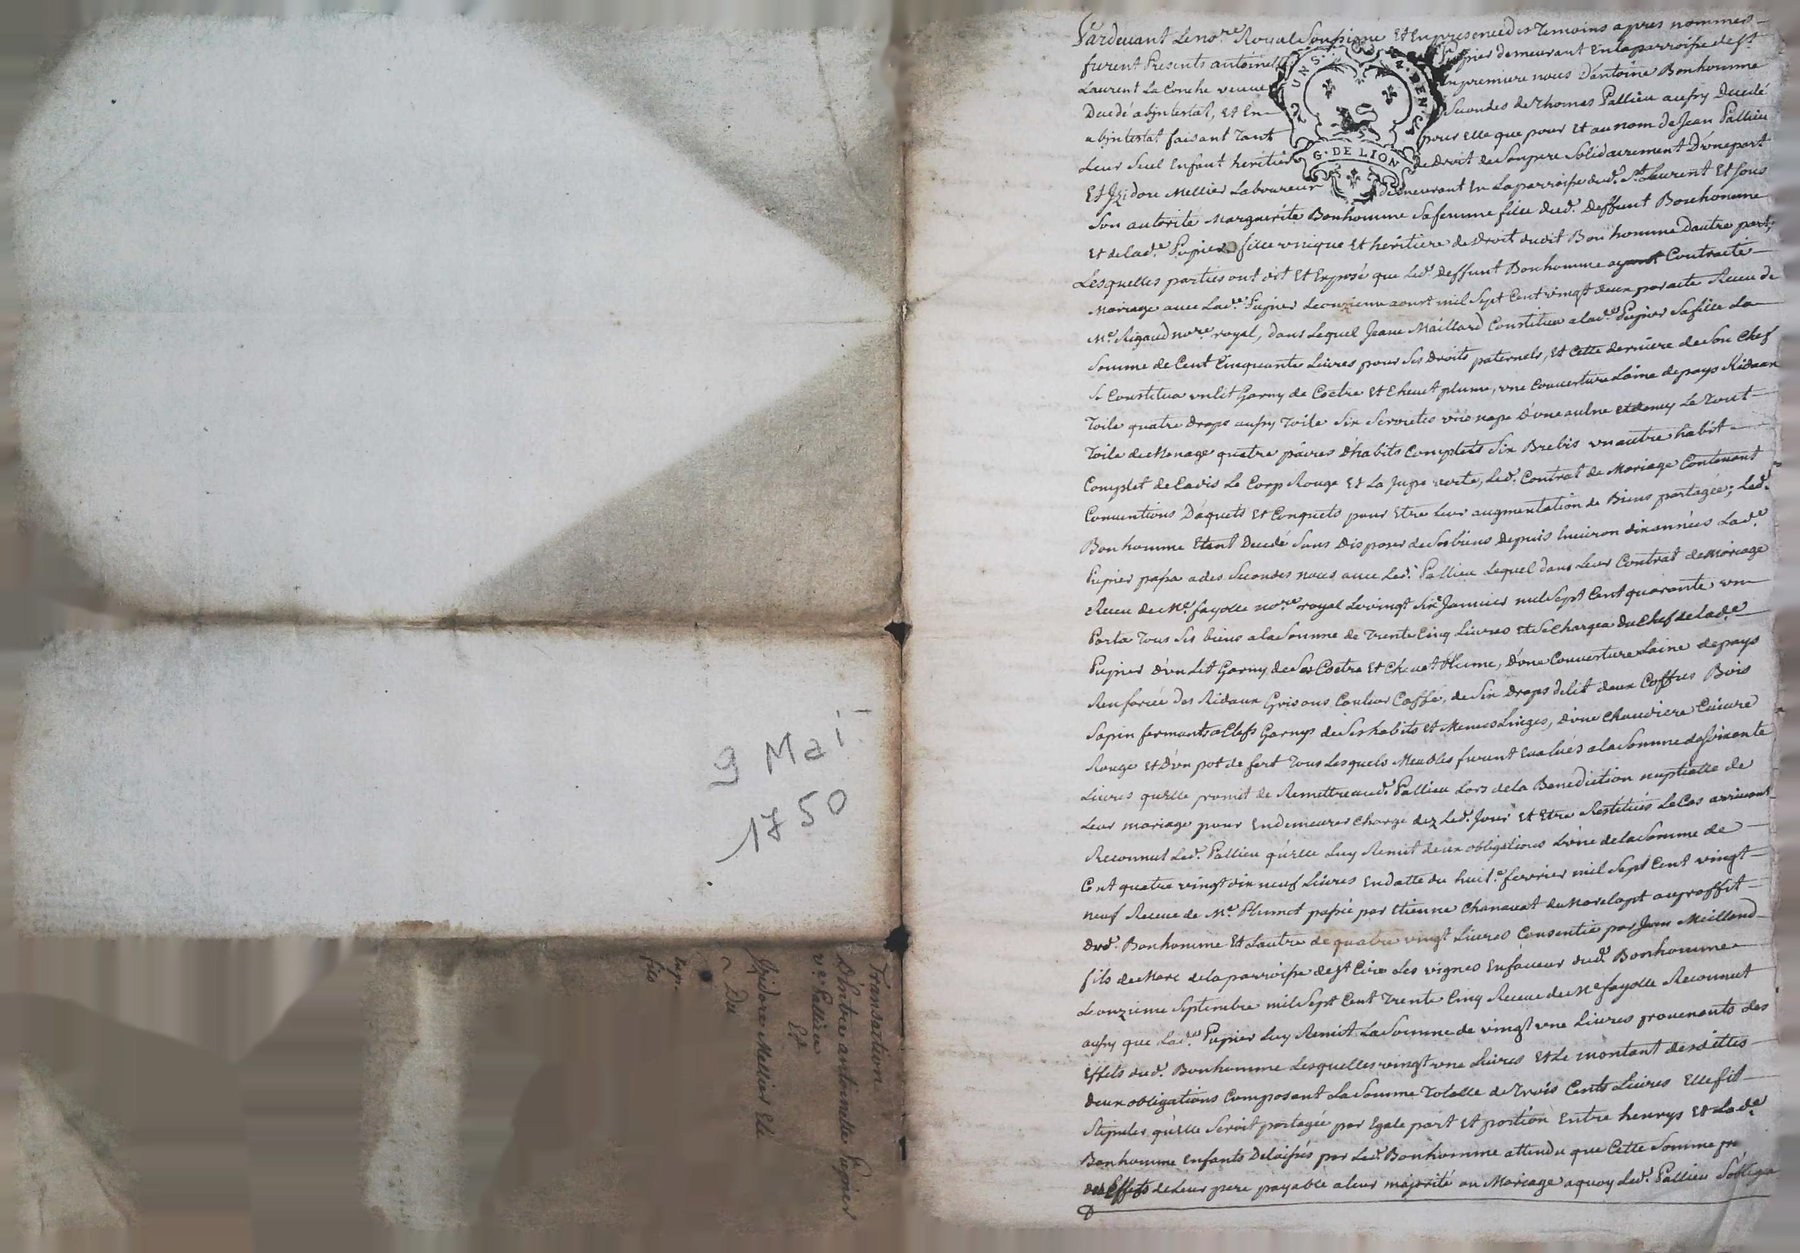 9 Mai
1750
Transaction
D'Entre antoinette Pupier
ve. Pallieu
Et
Izidore Mellier Et
Du
Exp.
fico
Pardevant Le no.re Royal Soussigné Et En presence des Temoins apres nommés
furent Presents antoinette Pupier demeurant En la parroisse de St.
Laurent La Conche veuve En premiere noces D'antoine Bonhomme
Decedé abjntestat, Et En Secondes de Thomas Pallieu aussy Decedé
abjntestat faisant Tant pour Elle que pour Et au nom de Jean Pallieu
Leur Seul Enfant heritier de droit de Son pere Solidairement D'une part
Et Jzidore Mellier Laboureur demeurant En La parroisse dud. St. Laurent Et Sous
Son autorité Marguerite Bonhomme Sa femme fille dud. Deffunt Bonhomme
Et de lad.e Pupier fille unique Et heritiere de Droit dudit Bonhomme D'autre part,
Lesquelles parties ont dit Et Exposé que Led. Deffunt Bonhomme ayant Contracté
Mariage avec Lad.e Pupier Le onzieme aoust mil Sept Cent vingt deux par acte Receu de
Me. Rigaud no.re royal, dans Lequel Jeane Maillard Constitua a lad.e Pupier Sa fille La
Somme de Cent Cinquante Livres pour Ses Droits paternels, Et Cette derniere de Son Chef
Se Constitua un lit Garny de Coetre Et Chevet plume, une Couverture Laine de pays Rideaux
Toile quatre draps aussy Toile Six Serviettes une nape D'une aulne Et demy Le Tout
Toile de Menage quatre paires d'habits Complets Six Brebis un autre habit
Complet de Cadis Le Corp Rouge Et La Jupe verte, Led. Contrat de Mariage Contenant
Conventions D'aquets Et Conquets pour Etre Leur augmentation de Biens partagée; Led.
Bonhomme Etant Decedé Sans Disposer de Ses biens Depuis Environ dix années Lad.e
Pupier passa a des Secondes noces avec Led. Pallieu Lequel dans Leur Contrat de Mariage
Receu de Me. fayolle no.re royal Le vingt Six Janvier mil Sept Cent quarante un
Porta Tous Ses biens a la Somme de Trente Cinq Livres Et Se Chargea du Chef de Lad.e
Pupier D'un Lit Garny de Sa Coetre Et Chevet Plume, D'une Couverture Laine de pays
Renforcée Des Rideaux Grisons Couleur Caffé, de Six Draps de Lit deux Coffres Bois
Sapin fermants a Clefs Garnys de Ses habits Et Menus Linges, D'une Chaudiere Cuivre
Rouge Et D'un pot de fert Tous Lesquels Meubles furent Evalués a la Somme de Soixante
Livres qu'elle promit de Remettre aud. Pallieu Lors de La Benediction nuptialle de
Leur mariage pour En demeurer Chargé dez Led. Jour Et Etre Restitués Le Cas arrivant
Reconnut Led. Pallieu qu'elle Luy Remit deux obligations L'une de la Somme de
Cent quatre vingt dix neuf Livres En datte du huit.e fevrier mil Sept Cent vingt
neuf Receue de Me. Plumet passée par Etienne Chanavat de Marclopt au proffit
Dud. Bonhomme Et L'autre de quatre vingt Livres Consentie par Jean Meilland
fils de Marc de la parroisse de St Cire Les vignes En faveur dud. Bonhomme
Le onzieme Septembre mil Sept Cent Trente Cinq Receue de Me fayolle Reconnut
aussy que Lad.e Pupier Luy Remit La Somme de vingt une Livres provenants des
Effets dud. Bonhomme Lesquelles vingt une Livres Et Le montant desdittes
deux obligations Composant La Somme Totalle de Trois Cents Livres Elle fit
Stipuler qu'elle Seroit partagée par Egale part Et portion Entre henrys Et Lad.e
Bonhomme Enfants Delaissés par Led. Bonhomme attendu que Cette Somme
des Effets de Leur pere payable a leur majorité ou Mariage a quoy Led. Pallieu S'obligea
G. DE LION